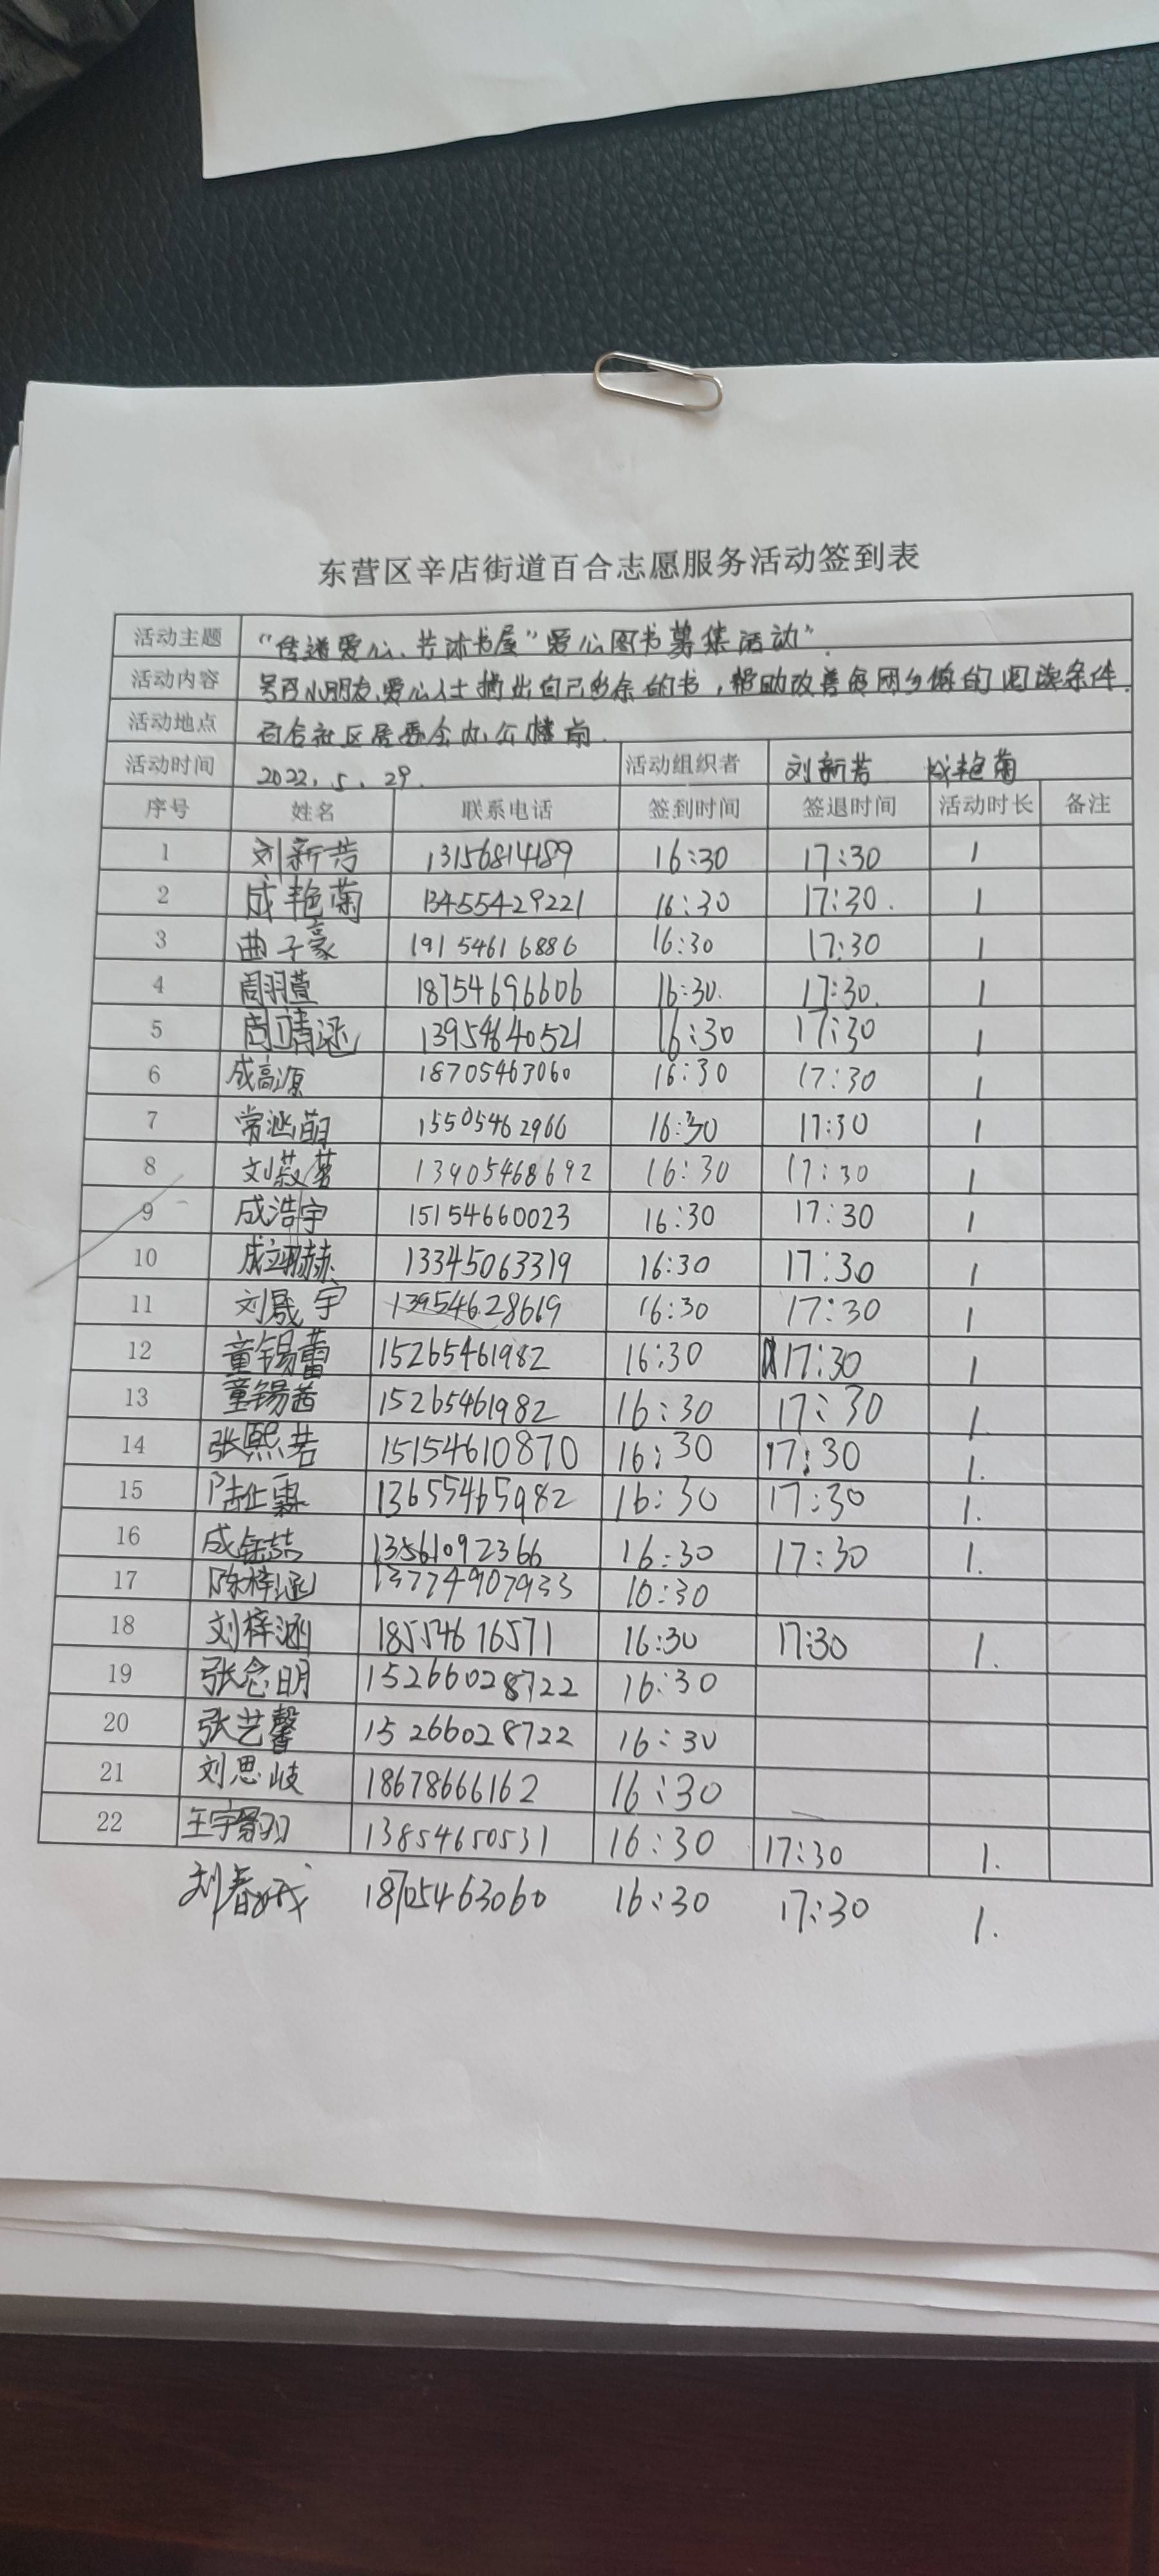 东营区辛店街道百合志愿服务活动签到表
活动主题 "传递爱心、芳沐书屋"爱心图书募集活动".
活动内容 号召小朋友、爱心人士捐出自己多余的书,帮助改善贫困乡镇的阅读条件.
活动地点 百合社区居委会办公楼前.
活动时间 2022.5.29. 活动组织者 刘新芳 成艳菊
序号 姓名 联系电话 签到时间 签退时间 活动时长 备注
1 刘新芳 13156814189 16:30 17:30 1
2 成艳菊 13455429221 16:30 17:30. 1
3 曲子豪 19154616886 16:30 17:30 1
4 周羽萱 18754696606 16:30. 17:30. 1
5 周靖涵 13954640521 16:30 17:30 1
6 成高源 18705463060 16:30 17:30 1
7 常涵萌 15505462966 16:30 17:30 1
8 刘菽茗 13905468692 16:30 17:30 1
9 成浩宇 15154660023 16:30 17:30 1
10 成翊赫 13345063319 16:30 17:30 1
11 刘晟宇 13954628619 16:30 17:30 1
12 童锡蕾 15265461982 16:30 17:30 1
13 童锡茜 15265461982 16:30 17:30 1.
14 张熙若 15154610870 16:30 17:30 1.
15 陆仕霖 13655465982 16:30 17:30 1.
16 成 13561092366 16:30 17:30 1.
17 陈梓涵 137774907933 16:30
18 刘梓涵 18554616571 16:30 17:30 1.
19 张念明 15266028722 16:30
20 张艺馨 15266028722 16:30
21 刘思岐 18678666162 16:30
22 王宇 13854650531 16:30 17:30 1.
刘春娥 18705463060 16:30 17:30 1.